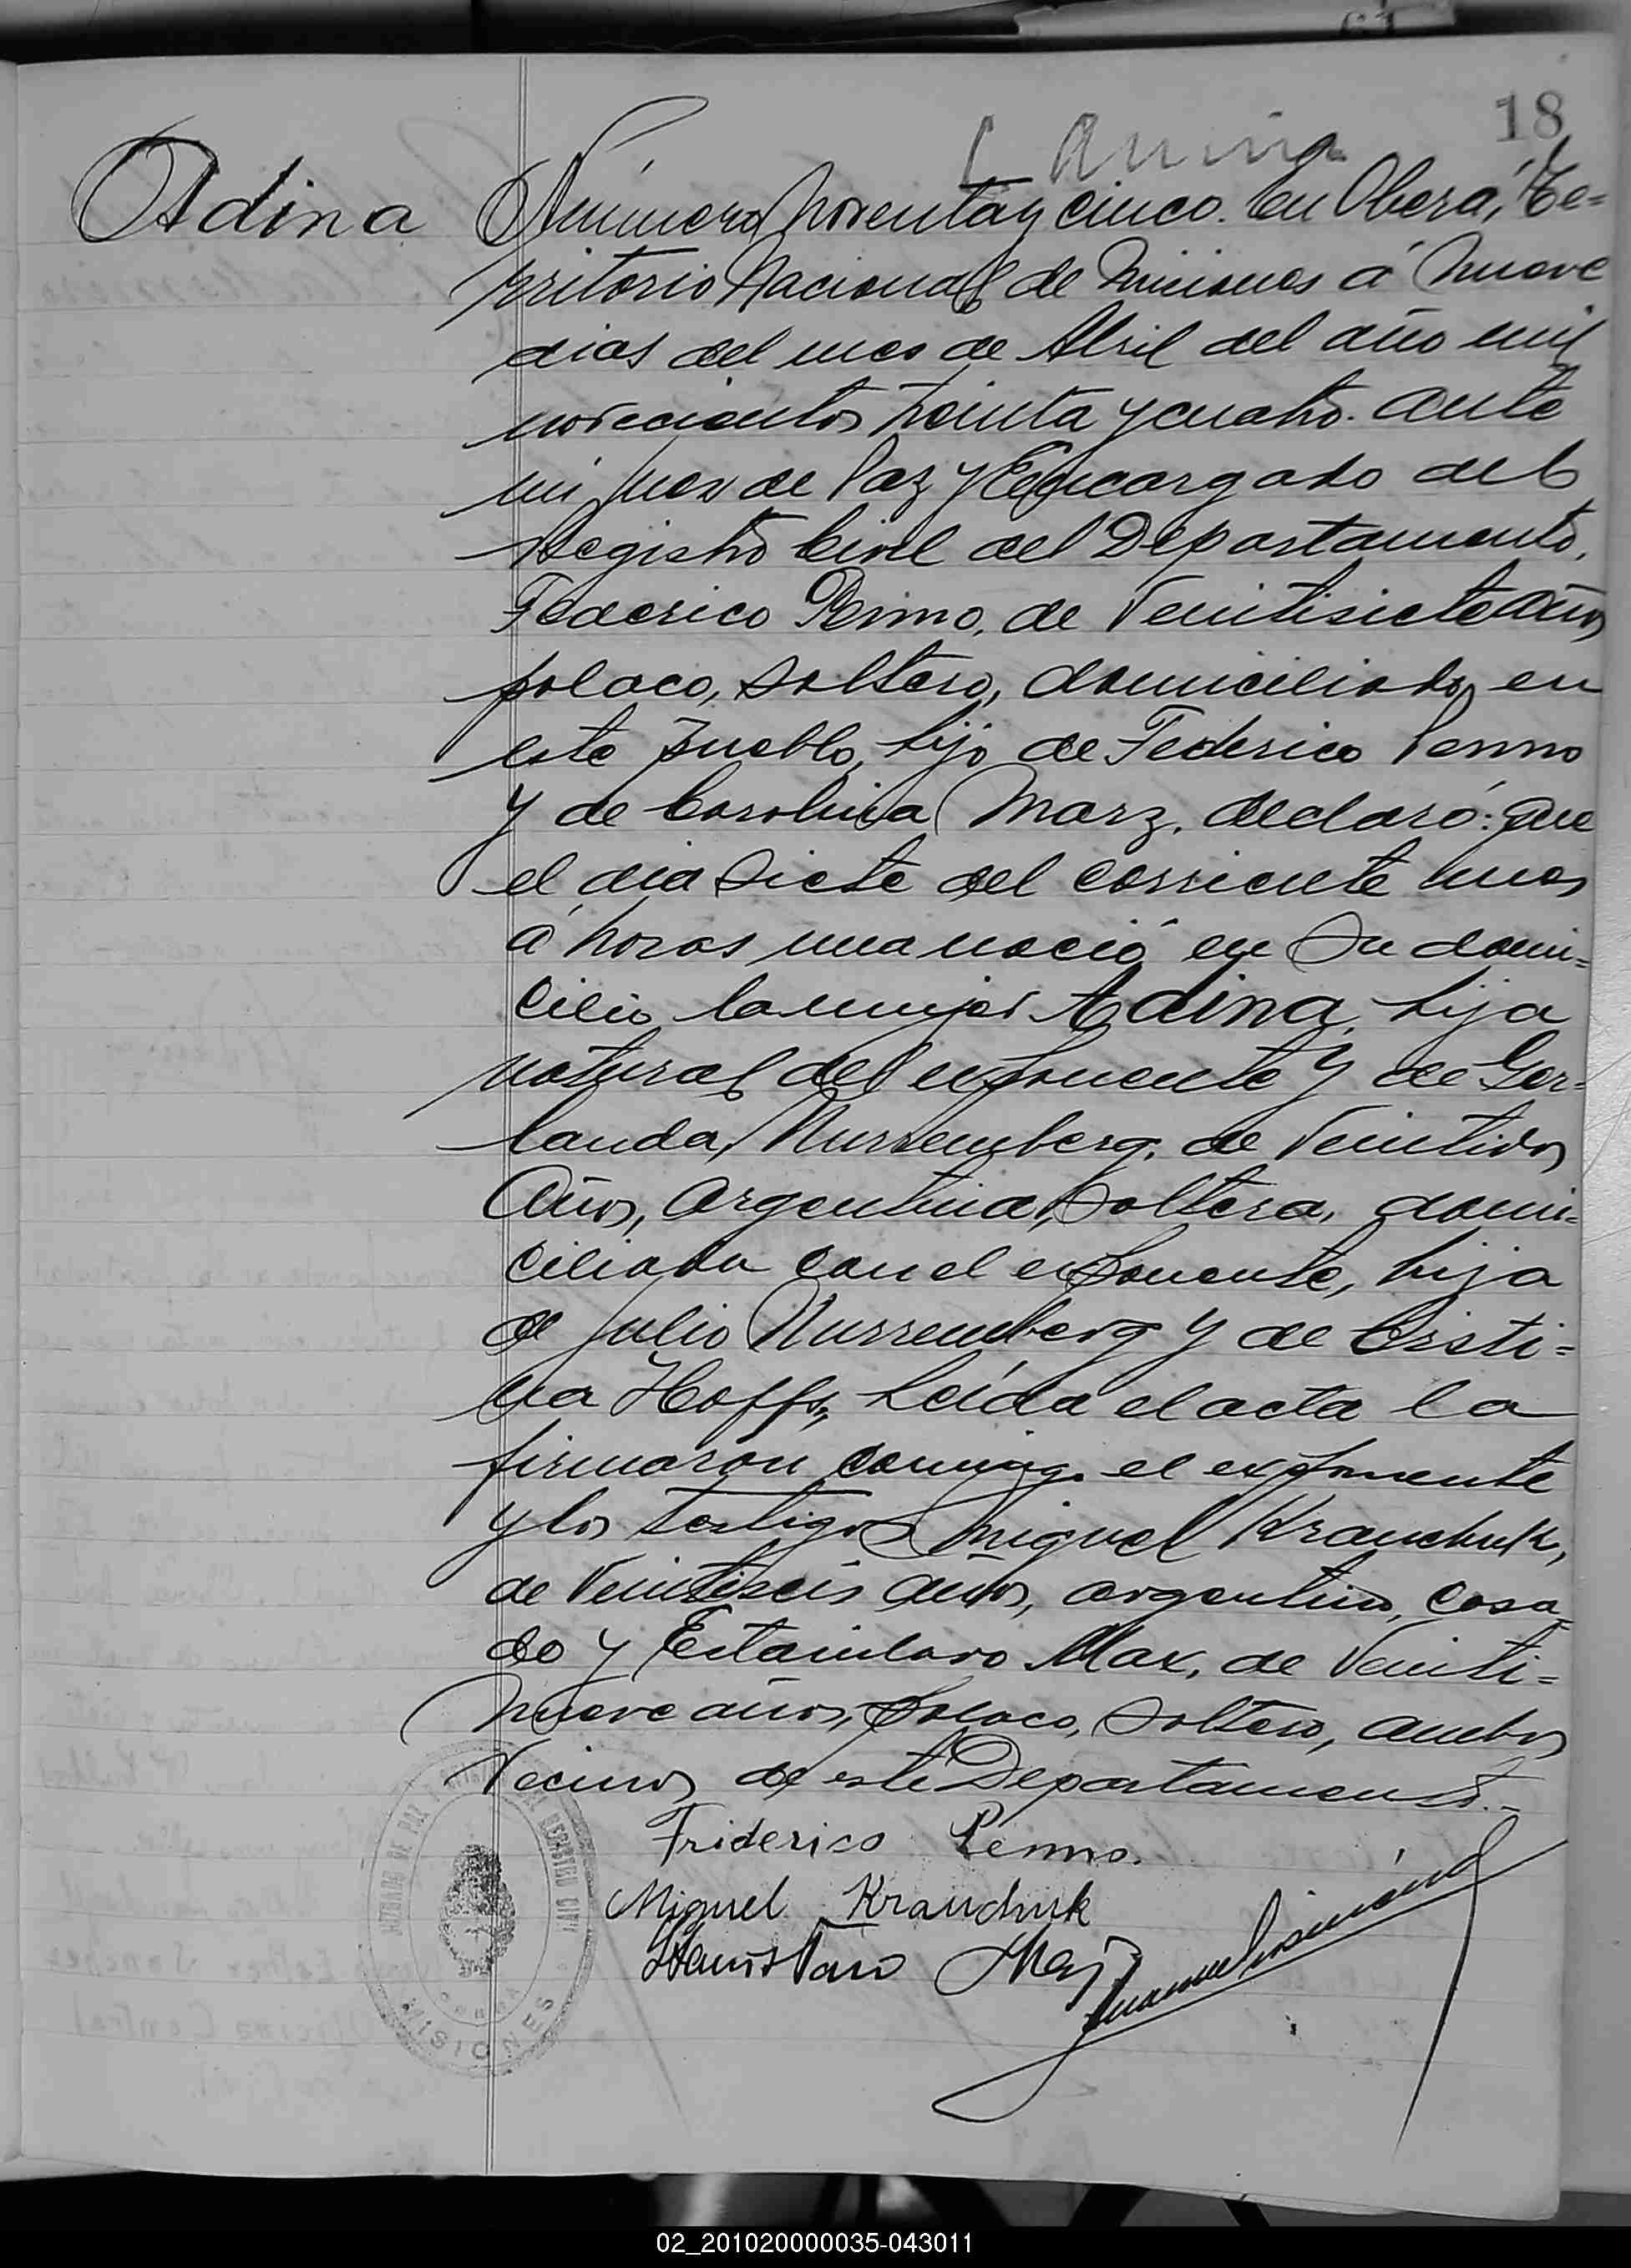 18
Adina
Número Noventa y cinco. En Oberá, Te=
rritorio Nacional de Misiones á nueve
dias del mes de Abril del año mil
novecientos treinta y cuatro. ante
mi Juez de Paz y Encargado del
Registro Civil del Departamento,
Federico Penno, de Veintisiete años
polaco, soltero, domiciliado en
este pueblo, hijo de Federico Penno
y de Carolina Marz, declaró: que
el dia siete del corriente mes
á horas una nació en su domi=
cilio la mujer Adina, hija
natural del exponente y de Ger=
landa Nurremberg, de Veintidos
años, argentina, soltera, domi=
ciliada con el exponente, hija
de Julio Nurremberg y de Cristi=
na Hoffs, Leída el acta la
firmaron conmigo el exponente
y los testigos Miguel Krauchuk,
de Veintiseis años, argentino, casa=
do y Estanislavo Max, de Veinti=
nueve años, polaco, soltero, ambos
Vecinos de este Departamento.-
Friderico Penno.
Miguel Krauchuk
Stanisław
JUZGADO DE PAZ Y DEL REGISTRO CIVIL
MISIONES
02_201020000035-043011